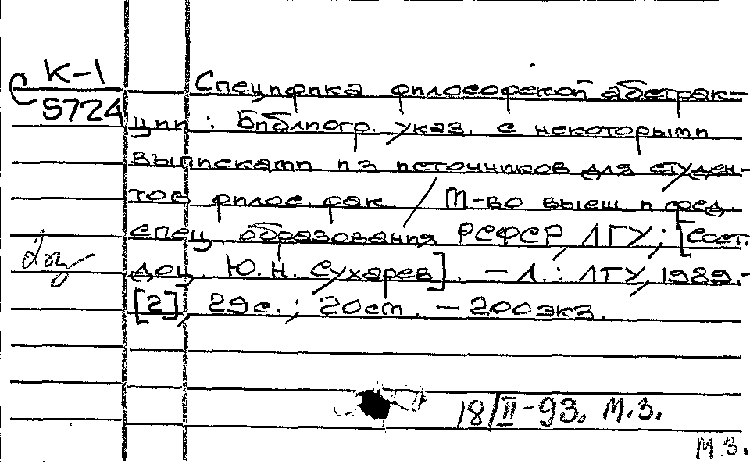 К-1
С 5724
Специфика философской абстрак-
ции: Библиогр. указ. с некоторыми
выписками из источников для студен-
тов филос. фак. / М-во высш. и сред.
спец. образования РСФСР, ЛГУ; [Сост.
доц. Ю.Н. Сухарев]. — Л.: ЛГУ, 1989.-
[2], 29с.; 20см. — 200экз.
18/II-93. М.З.
М.З.